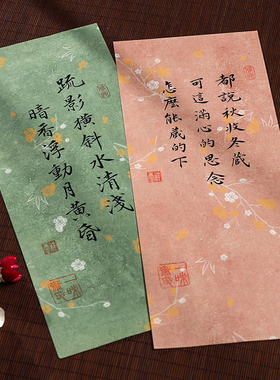 疏影橫斜水清淺
暗香浮動月黃昏
都說秋收冬藏
可這滿心的思念
怎麼能藏的下